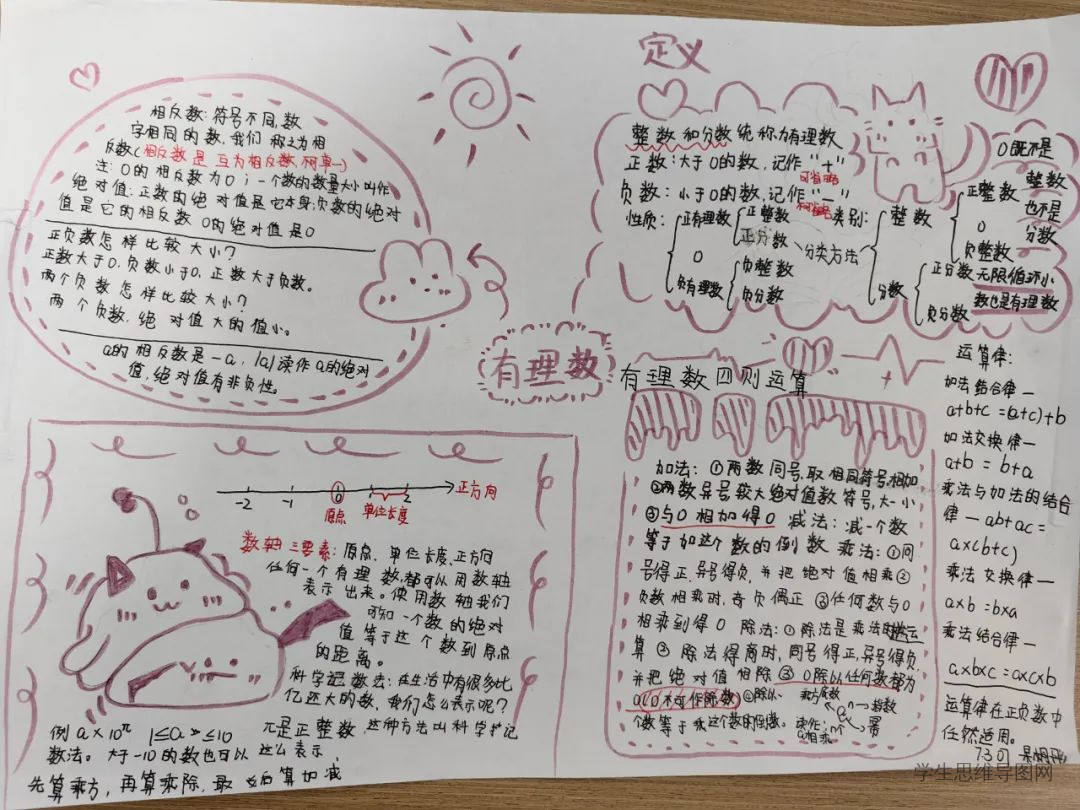 相反数:符号不同,数
字相同的数,我们称之为相
反数(相反数是互为相反数,
注:0的相反数为0;一个数的数量大小叫作
绝对值:正数的绝对值是它本身;负数的绝对
值是它的相反数 0的绝对值是0
正负数怎样比较大小?
正数大于0,负数小于0,正数大于负数。
两个负数怎样比较大小?
两个负数,绝对值大的值小。
a的相反数是-a,|a|读作a的绝对
值,绝对值有非负性
有理数
定义
整数和分数统称为有理数
正数:大于0的数,记作"+"
可省略
负数:小于0的数,记作"-"
性质:
正有理数
正整数
正分数
0
负有理数
负整数
负分数
分类方法
类别:
整数
正整数
0
负整数
分数
正分数
负分数
0既不是
整数
也不是
分数
无限循环小
数也是有理数
有理数四则运算
加法:①两数同号,取相同符号,相加
②两数异号较大绝对值数符号,大-小
③与0相加得0 减法:减一个数
等于加这个数的倒数 乘法:①同
号得正,异号得负,并把绝对值相乘②
负数相乘时,奇负偶正 ③任何数与0
相乘到得0 除法:①除法是乘法的逆运
算 ② 除法得商时,同号得正,异号得负,
并把绝对值相除③0除以任何数都为
0(0不可作除数)④除以
个数等于乘这个数的倒数。
乘方
指数
幂
读作:
运算律:
加法结合律—
a+b+c=(a+c)+b
加法交换律—
a+b=b+a
乘法与加法的结合
律—ab+ac=
a×(b+c)
乘法交换律—
a×b=b×a
乘法结合律—
a×b×c=a×c×b
运算律在正负数中
任然适用。
-2 -1 0 2
正方向
原点
单位长度
数轴三要素:原点、单位长度,正方向
任何一个有理数,都可以用数轴
表示出来。使用数轴我们
可知一个数的绝对
值等于这个数到原点
的距离。
科学记数法:在生活中有很多比
亿还大的数,我们怎么表示呢?
例 a×10ⁿ 1≤a≤10 n是正整数 这种方法叫科学记
数法。大于-10的数也可以这么表示
先算乘方,再算乘除,最后算加减
学生思维导图网